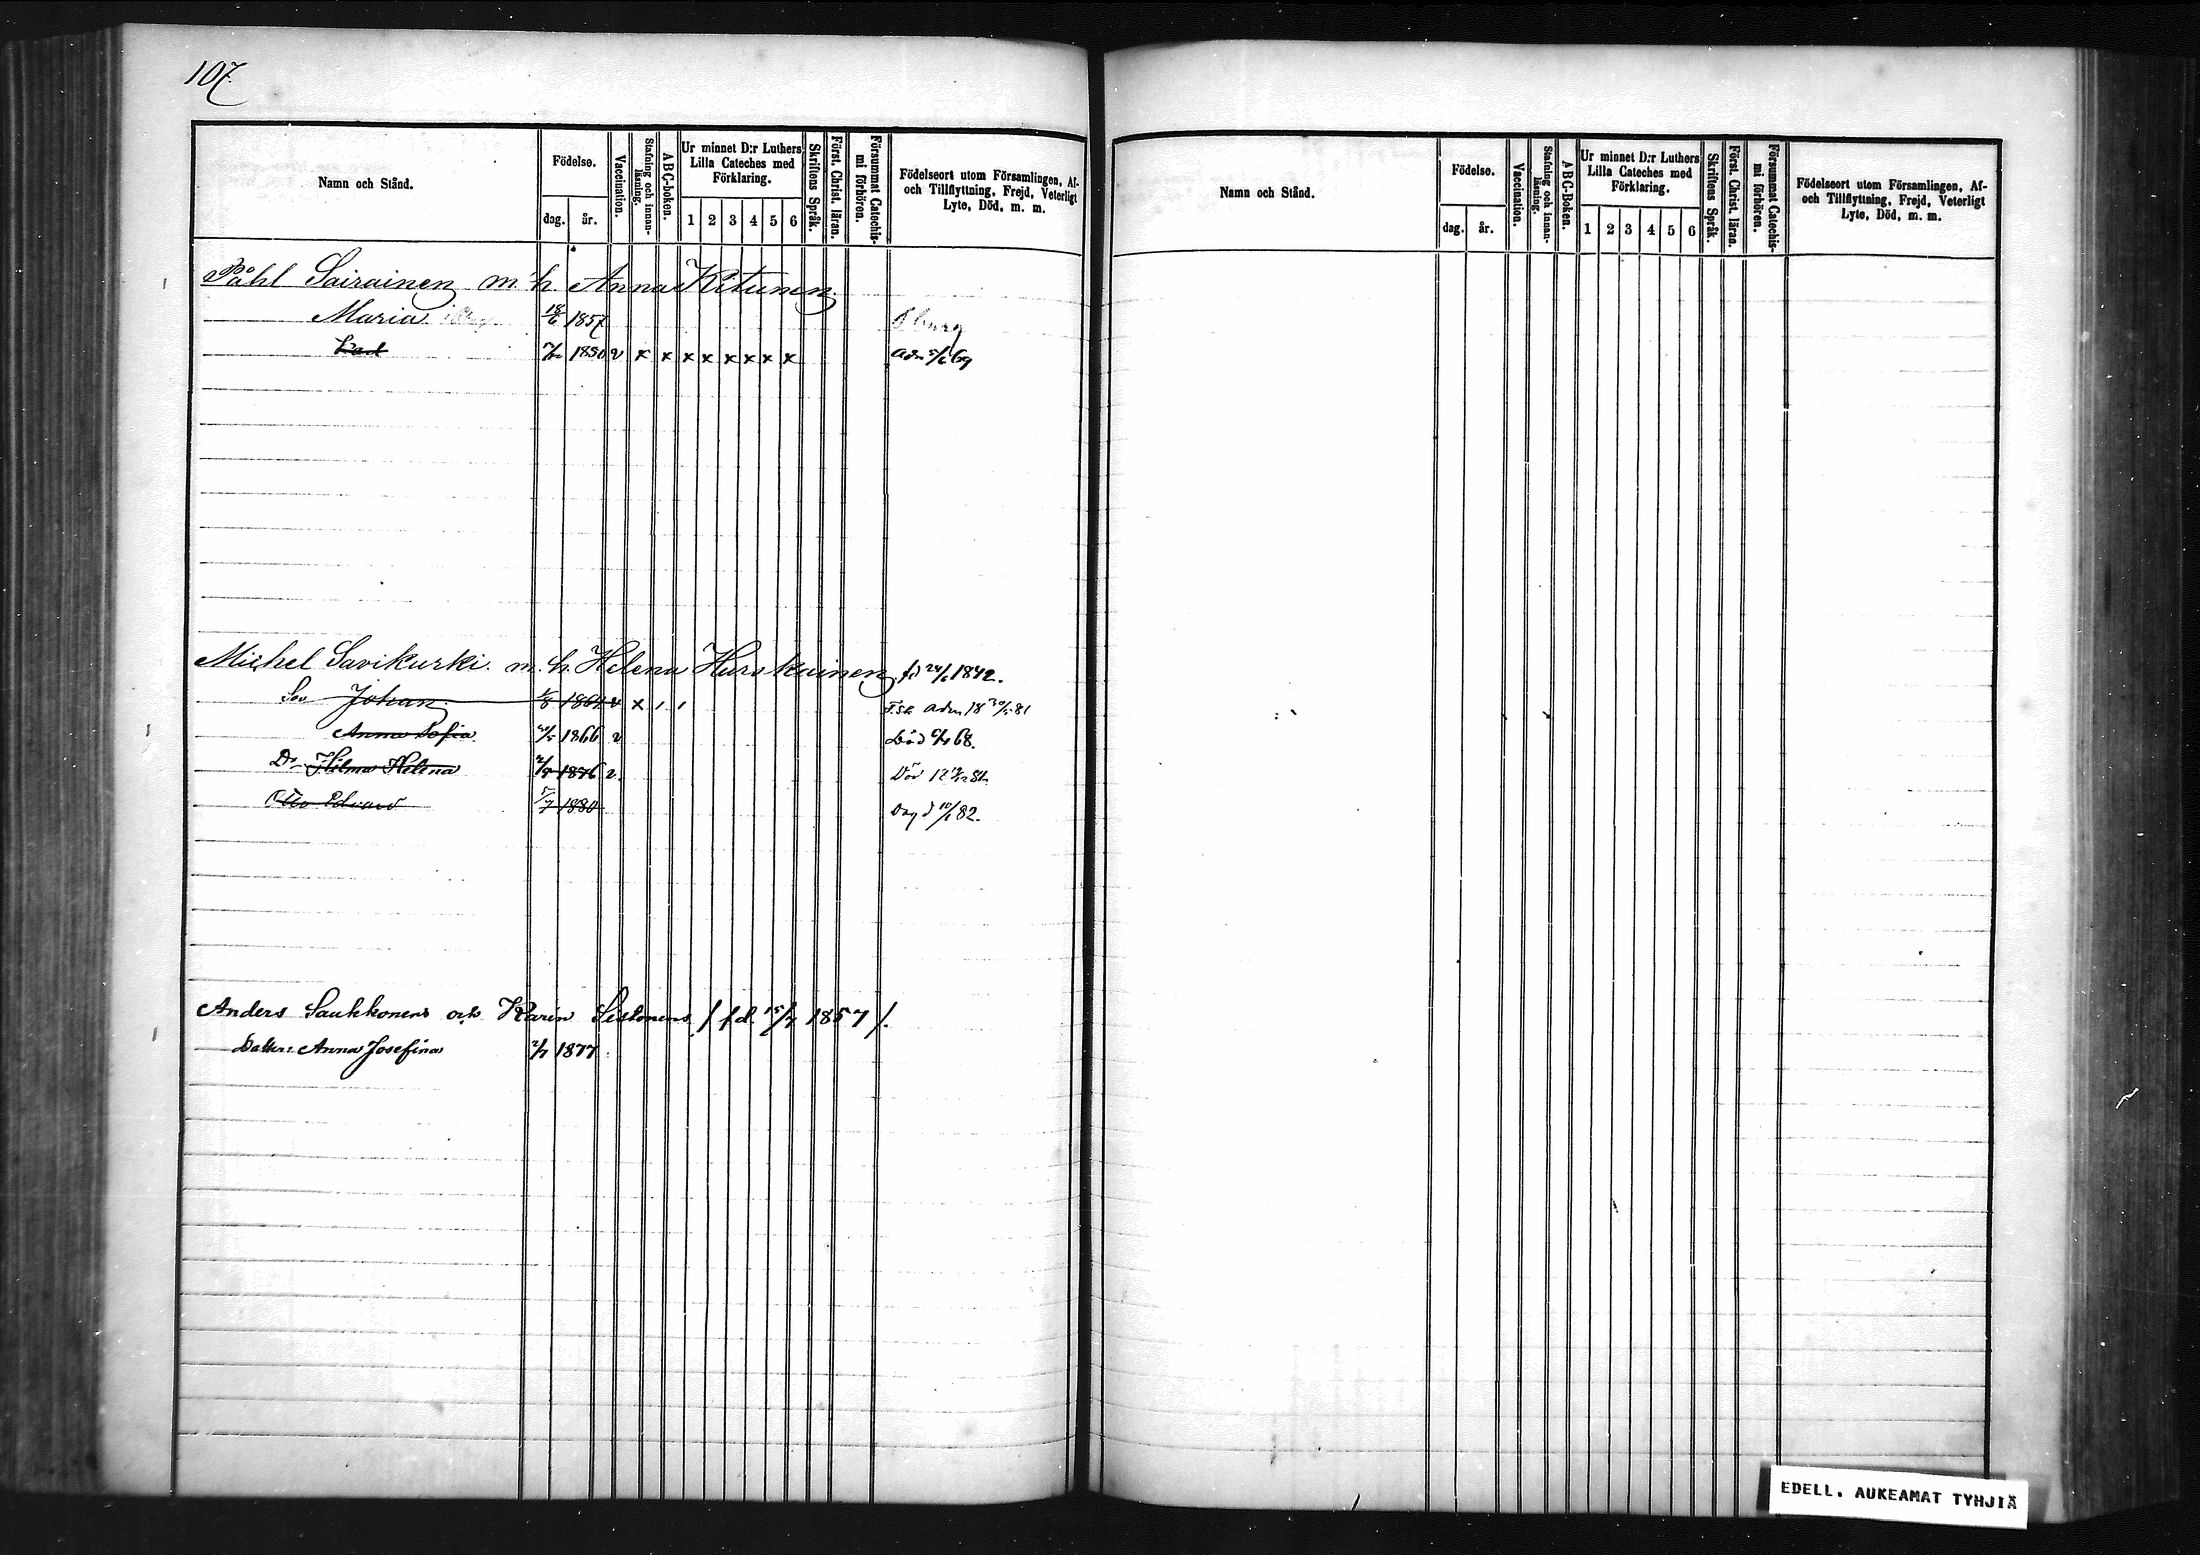 107.
Namn och Stånd.
Födelse.
dag.
år.
Vaccination.
Stafning och innan-
läsning.
ABC-boken.
Ur minnet D:r Luthers
Lilla Cateches med
Förklaring.
1 2 3 4 5 6
Skriftens Språk.
Först. Christ. läran.
Försummat Catechis-
mi förhören.
Födelseort utom Församlingen, Af-
och Tillflyttning, Frejd, Veterligt
Lyte, Död, m. m.
Påhl Sairainen m. h. Anna Kitunen
Maria 18/6 1857
1850 v x x x x x x x x adm 69
Michel Savikurki m. h. Helena Hurskainen fd 24/6 1842.
Son Johan 1864 v x / / adm 18 81
Anna Sofia 1866 v Död 68.
Dr Hilma Helena 1876 v. Död
Otto Edvard 5/7 1880 82.
Anders Saukkonens och Karin Sistonens / fd. 15/7 1857 /.
Dotter: Anna Josefina 2/7 1877
Namn och Stånd.
Födelse.
dag.
år.
Vaccination.
Stafning och innan-
läsning.
ABC-Boken.
Ur minnet D:r Luthers
Lilla Cateches med
Förklaring.
1 2 3 4 5 6
Skriftens Språk.
Först. Christ. läran.
Försummat Catechis-
mi förhören.
Födelseort utom Församlingen, Af-
och Tillflyttning, Frejd, Veterligt
Lyte, Död, m. m.
EDELL. AUKEAMAT TYHJIÄ